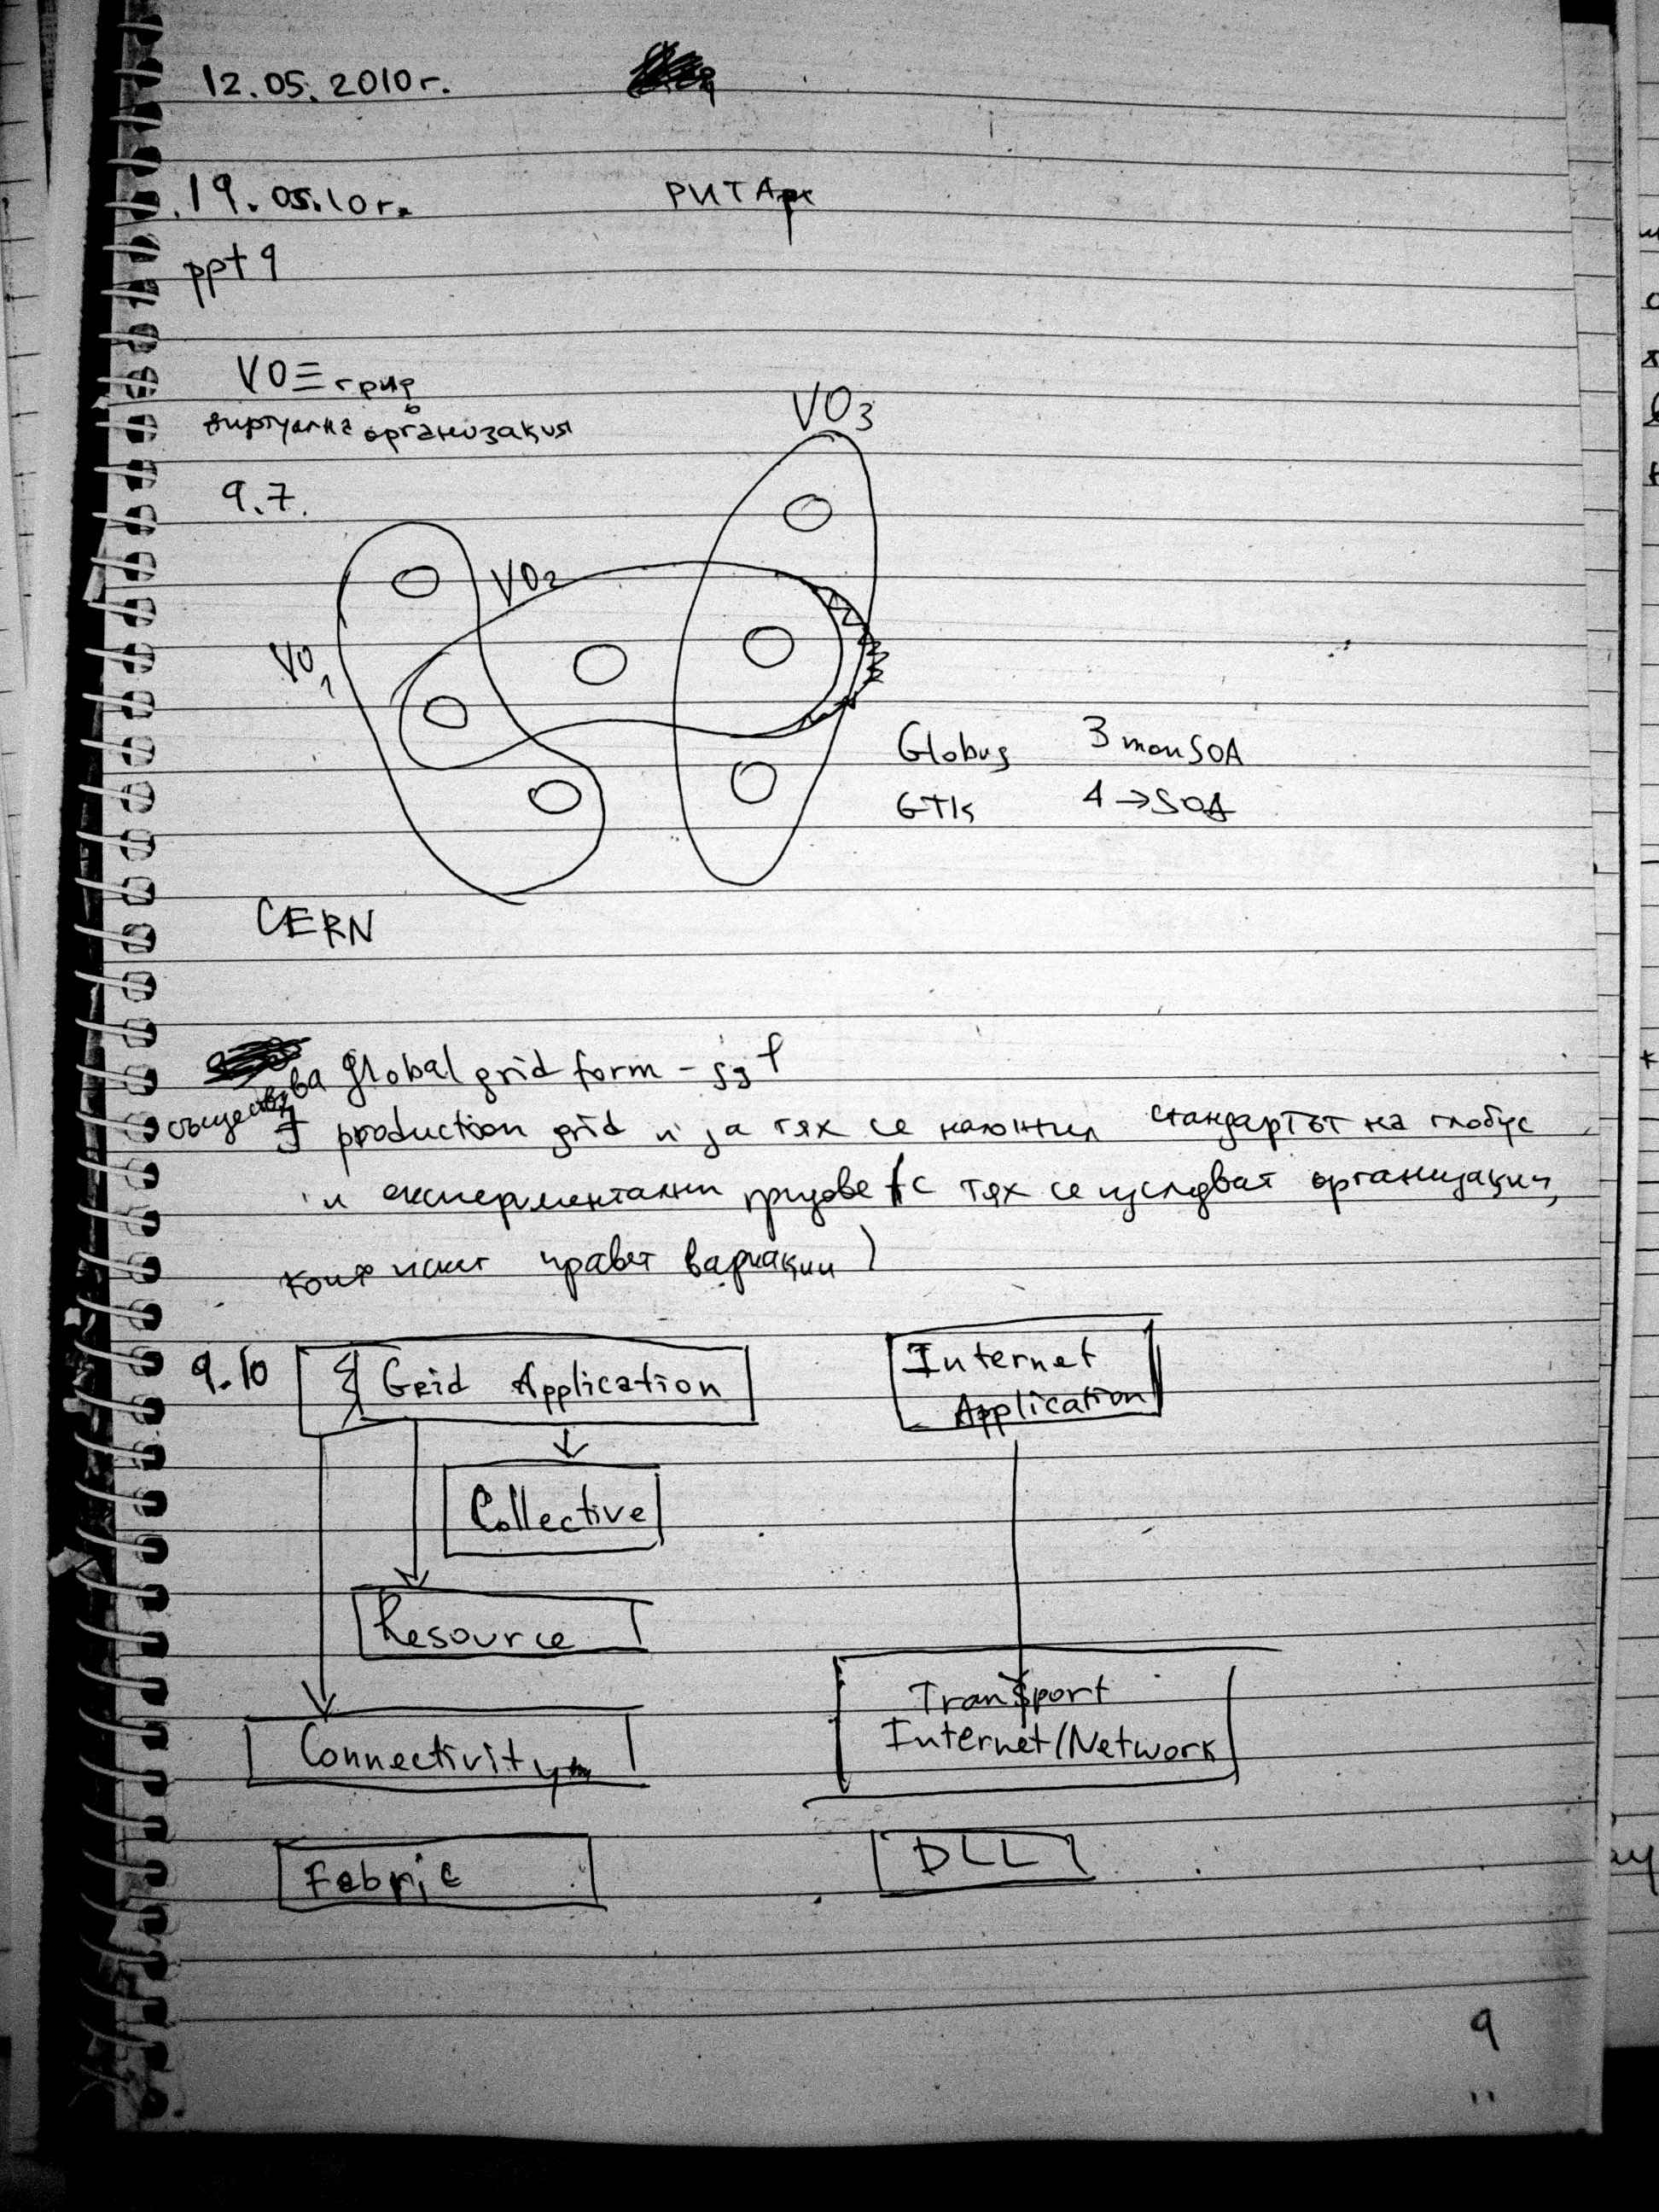 12.05.2010г.
19.05.10г. РИТАрх
ppt 9
VO≡грид
виртуална организация
9.7.
VO3
VO2
VO1
Globus 3 non SOA
GTK 4 → SOA
CERN
съществува Global grid form - ggf
∃ production grid и за тях се наложил стандартът на глобус
и експерментални гридове (с тях се изследват организации,
които искат правят вариации)
9.10 Grid Application
Internet
Application
Collective
Resource
Transport
Internet/Network
Connectivity
Fabric
DLL
9